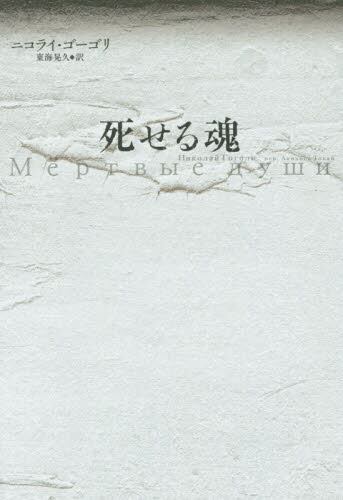 ニコライ・ゴーゴリ
東海晃久◆訳
死せる魂
Николай Гоголь пер. Акихиса Токай
Мертвые души